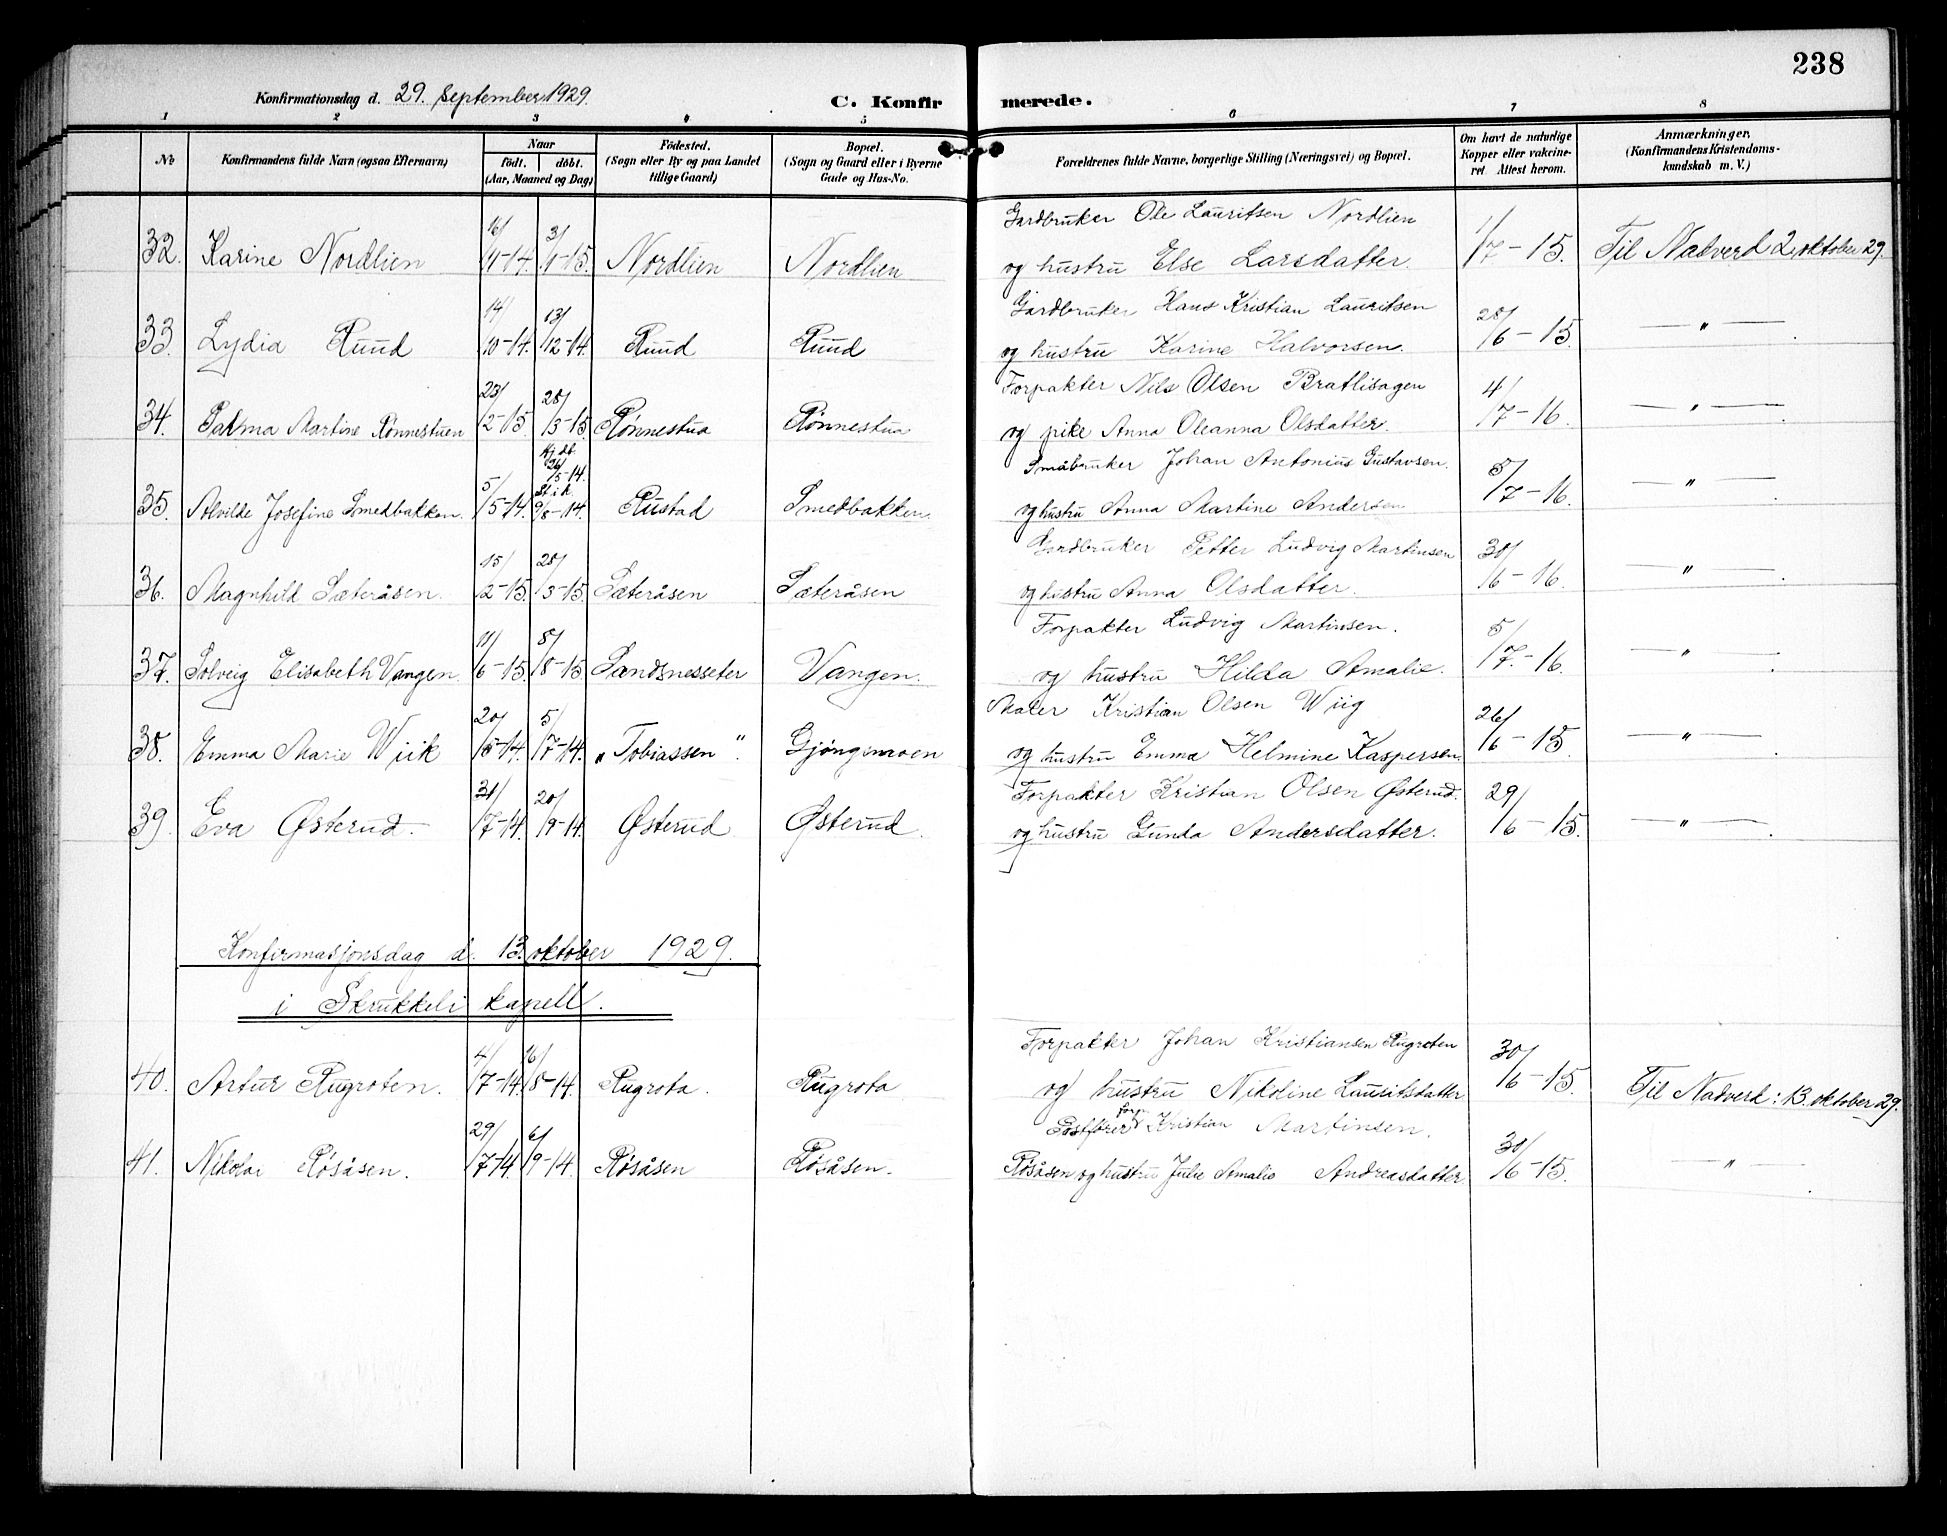 238
Konfirmationsdag d. 29. september 1929.
C. Konfirmerede.
1 2 3 4 5 6 7 8
No
Konfirmandens fulde Navn (ogsaa Efternavn)
Naar
födt. döbt.
(Aar, Maaned og Dag)
Födested.
(Sogn eller By og paa Landet
tillige Gaard)
Bopæl.
(Sogn og Gaard eller i Byerne
Gade og Hus-No.
Forældrenes fulde Navne, borgerlige Stilling (Næringsvei) og Bopæl.
Om havt de naturlige
Kopper eller vakcine-
ret Attest herom.
Anmærkninger.
(Konfirmandens Kristendoms-
kundskab m. V.)
Gardbruker Ole Lauritsen Nordlien
32. Karine Nordlien 16/11-14. 31/1-15. Nordlien Nordlien og hustru Else Larsdatter. 1/7-15. Til Nadverd 2 oktober 29.
Gardbruker Hans Kristian Lauritsen
33. Lydia Ruud 14/10-14. 13/12-14. Ruud Ruud og hustru Karine Halvorsen. 28/6-15 — " —
Forpakter Nils Olsen Bratlisagen
34. Palma Martine Rønnestuen 23/2-15. 28/3-15. Rønnestua Rønnestua og pike Anna Oleanna Olsdatter. 4/7-16. — " —
Hj. db. 26/5-14.
St i k. 9/8-14.
Småbruker Johan Antonius Gustavsen.
35. Alvilde Josefine Smedbakken. 5/5-14. Rustad Smedbakken. og hustru Anna Martine Andersen 5/7-16. — " —
Gardbruker Petter Ludvig Martinsen
36. Magnhild Sæteråsen. 15/2-15. 28/3-15. Sæteråsen Sæteråsen og hustru Anna Olsdatter. 30/6-16. — " —
Forpakter Ludvig Martinsen.
37. Solveig Elisabeth Vangen. 11/6-15. 8/8-15. Sandsnesseter Vangen. og hustru Hilda Amalie. 5/7-16. — " —
Maler Kristian Olsen Wiig
38. Emma Marie Wiik 20/5-14. 5/7-14. „Tobiassen". Gjøngmoen og hustru Emma Helmine Kaspersen. 26/6-15 — " —
Forpakter Kristian Olsen Østerud.
39. Eva Østerud. 31/7-14. 20/9-14. Østerud Østerud. og hustru Gunda Andersdatter. 29/6-15. — " —
Konfirmasjonsdag d. 13. oktober 1929.
i Skrukkeli kapell.
Forpakter Johan Kristiansen Rugroten
40. Artur Rugroten. 4/7-14. 16/8-14. Rugrota. Rugrota og hustru Nikoline Lauritsdatter 30/6-15. Til Nadverd: 13 oktober 29.
Postfører forp. Kristian Martinsen.
41. Nikolai Røsåsen. 29/7-14. 6/9-14. Røsåsen Røsåsen. Røsåsen og hustru Julie Amalie Andreasdatter. 30/6-15. — " —